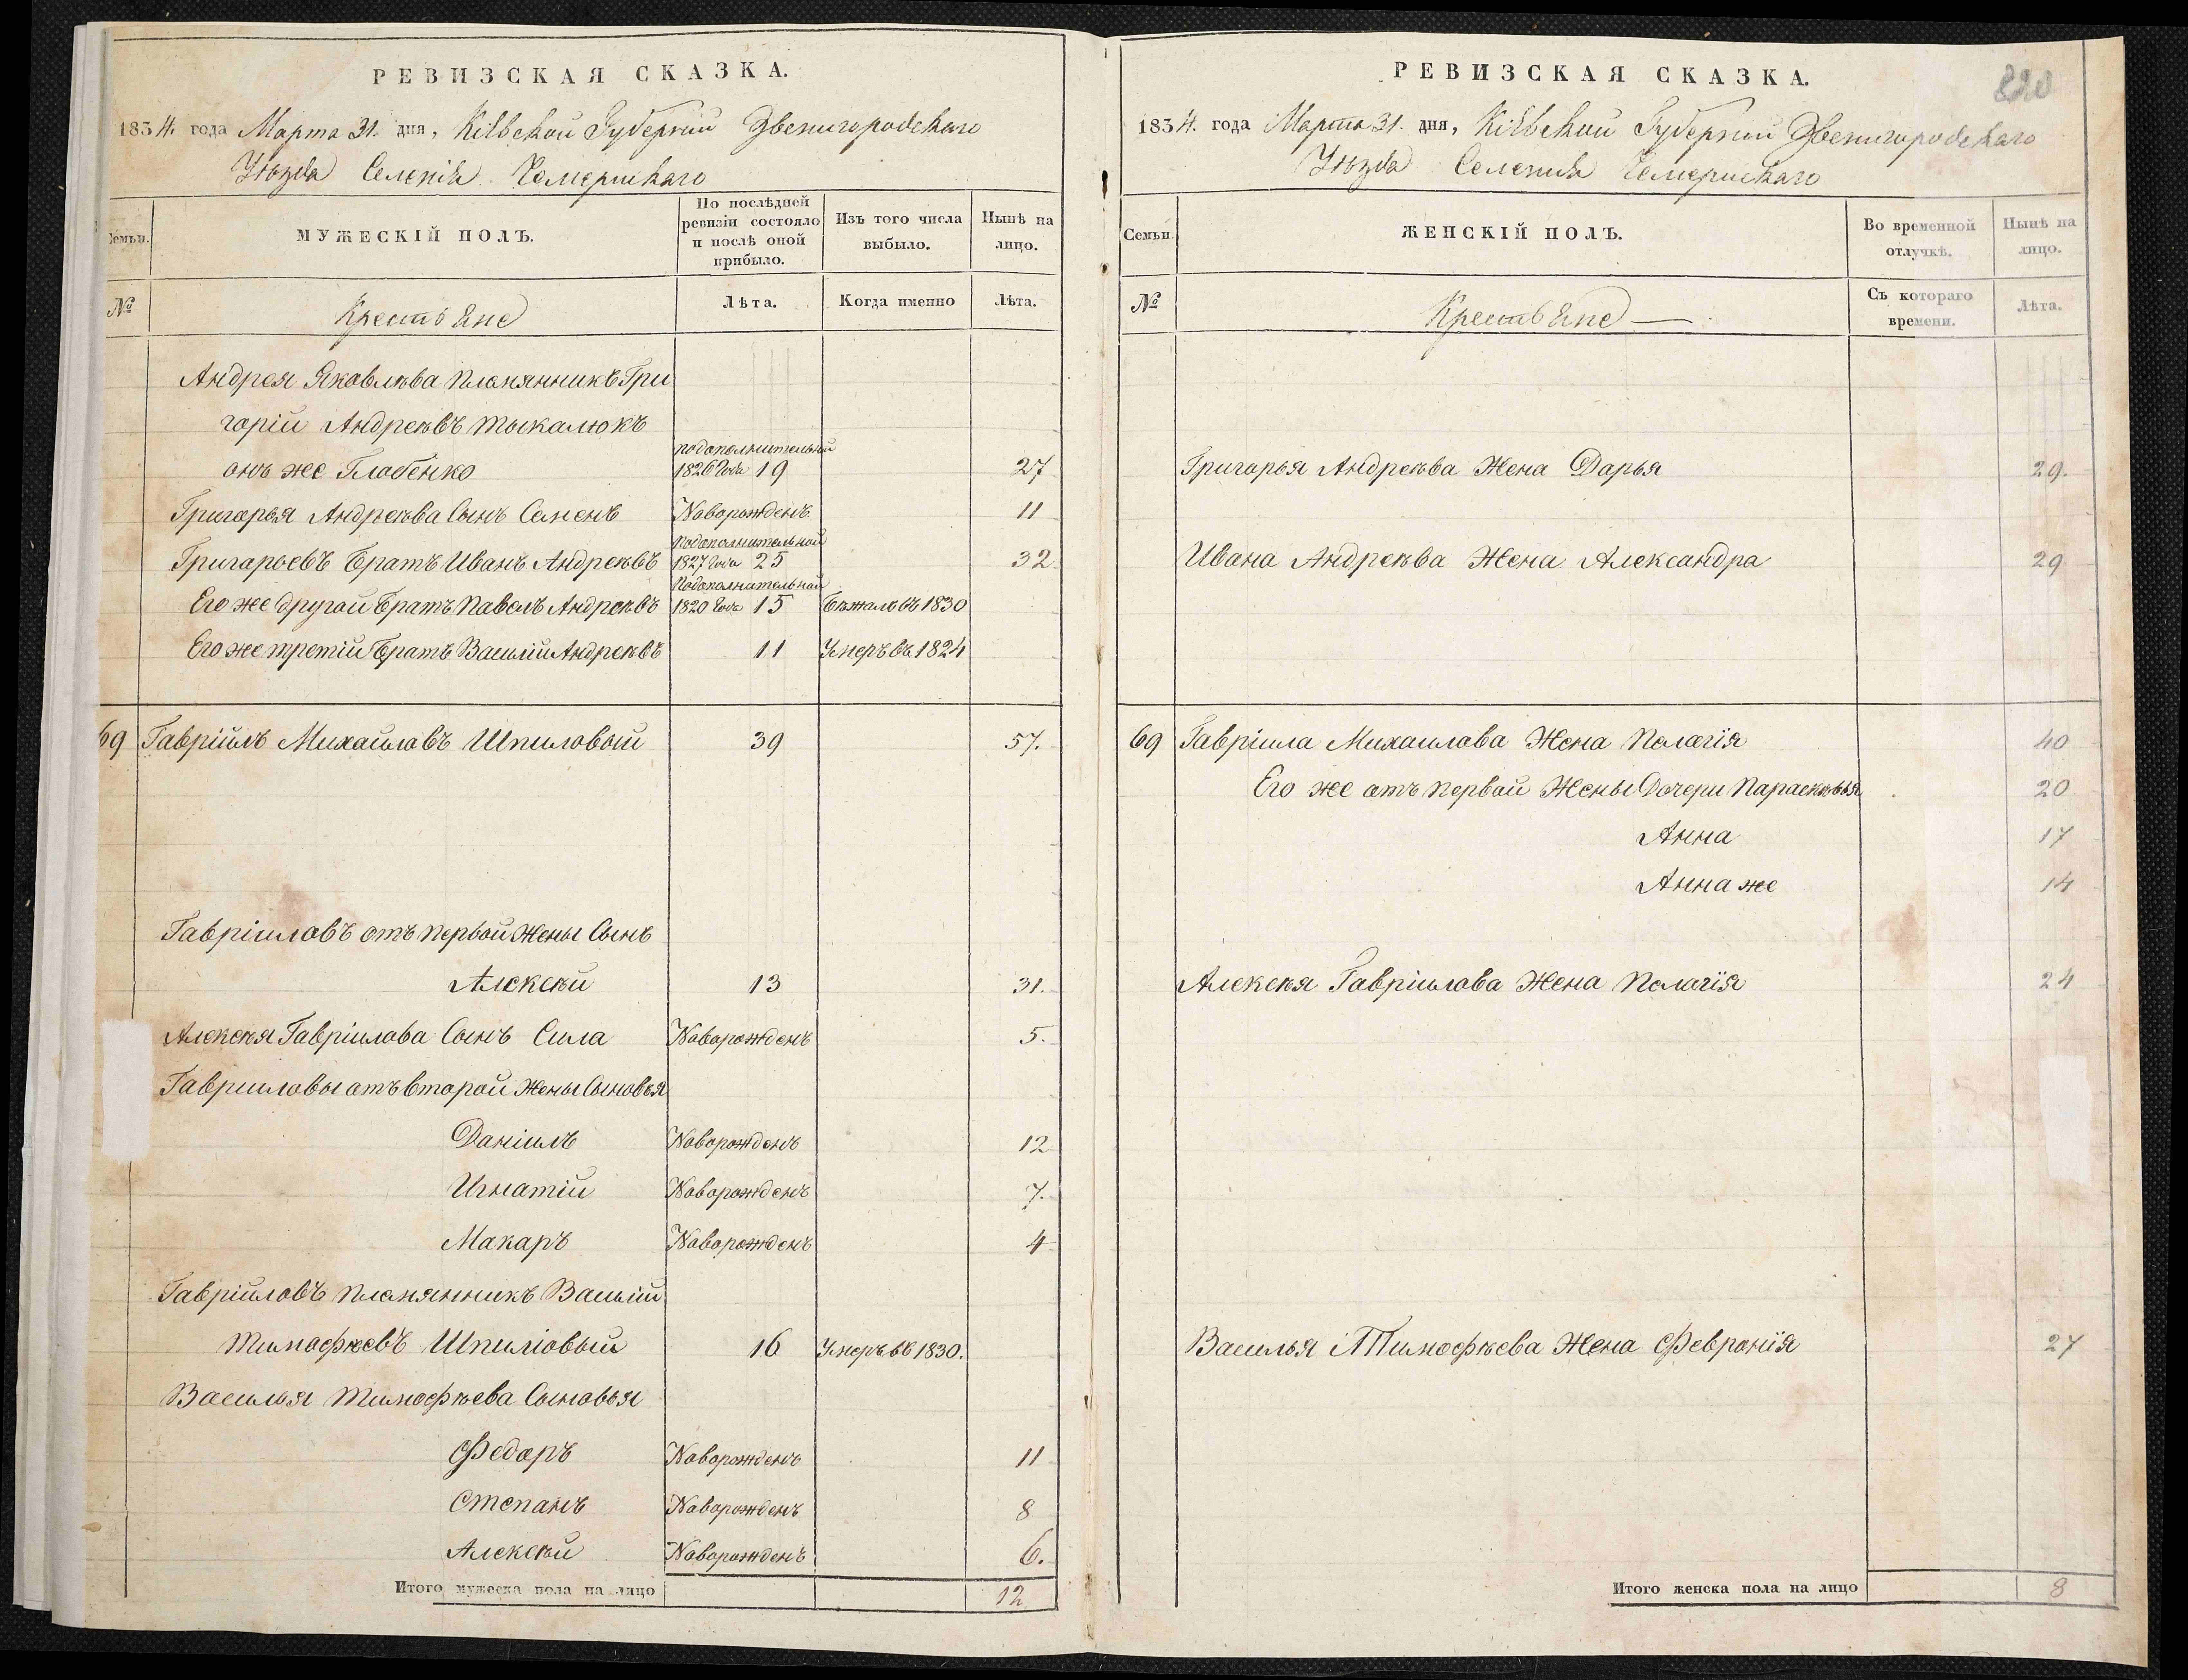 РЕВИЗСКАЯ СКАЗКА.
1834. года Марта 31. дня, Кіевской Губерніи Звенигородскаго
Уѣзда Селенія Чемерискаго
Семьи.
МУЖЕСКІЙ ПОЛЪ.
По послѣдней ревизіи состояло и послѣ оной прибыло.
Изъ того числа выбыло.
Нынѣ на лицо.
№
Крестьяне
Лѣта.
Когда именно
Лѣта.
Андрея Яковлѣва племянникъ Гри
горій Андреѣвъ Тыкалюкъ
онъ же Глабенко подополнительной 1826 года 19 27
Григорья Андреѣва Сынъ Семенъ Наворожденъ 11
Григарьевъ Братъ Иванъ Андреѣвъ подополнительной 1827 года 25 32
Его же другой Братъ Павелъ Андреѣвъ подополнительной 1820 года 15 Бѣжалъ въ 1830
Его же третій Братъ Василій Андреѣвъ 11 Умеръ въ 1824
69 Гавріилъ Михайловъ Шпиловый 39 57.
Гавріиловъ отъ первой жены Сынъ
Алексѣй 13 31.
Алексѣя Гавріилова Сынъ Сила Наворожденъ 5.
Гавриловы отъ второй жены Сыновья
Даніилъ Наворожденъ 12
Игнатій Наворожденъ 7.
Макаръ Наворожденъ 4
Гавріиловъ племянникъ Василій
Тимофѣевъ Шпиліовый 16 Умеръ въ 1830.
Василья Тимофѣева Сыновья
Федоръ Наворожденъ 11
Степанъ Наворожденъ 8
Алексѣй Наворожденъ 6.
Итого мужеска пола на лицо 12
820
РЕВИЗСКАЯ СКАЗКА.
1834. года Марта 31. дня, Кіевской Губерніи Звенигородскаго
Уѣзда Селенія Чемерискаго
Семьи.
ЖЕНСКІЙ ПОЛЪ.
Во временной отлучкѣ.
Нынѣ на лицо.
№
Крестьяне
Съ котораго времени.
Лѣта.
Григорья Андреѣва Жена Дарья 29.
Ивана Андреѣва Жена Александра 29
69 Гавріила Михаилова Жена Пелагія 40
Его же отъ первой Жены Дочери Параскѣвья 20
Анна 17
Анна же 14
Алексѣя Гавріилова Жена Пелагія 24
Василья Тимофѣева Жена Февронія 27
Итого женска пола на лицо 8